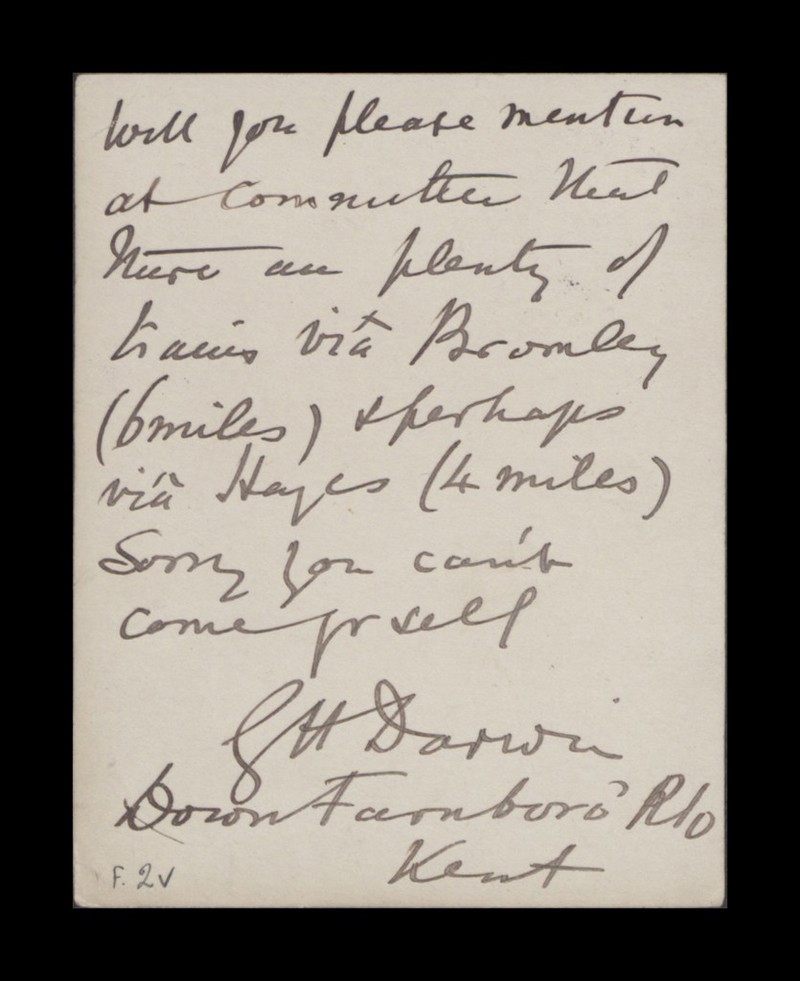 Will you please mention
at committee that
there are plenty of
trains viâ Bromley
(6 miles) & perhaps
viâ Hayes (4 miles)
Sorry you can't
come yrself
G H Darwin
Down Farnboro' R.S.O
Kent
F. 2v